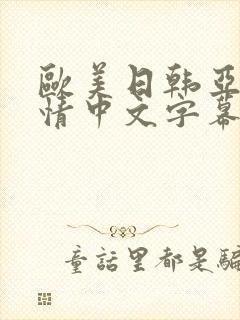 歐美日韩亞
情中文字幕
童話里都是騙